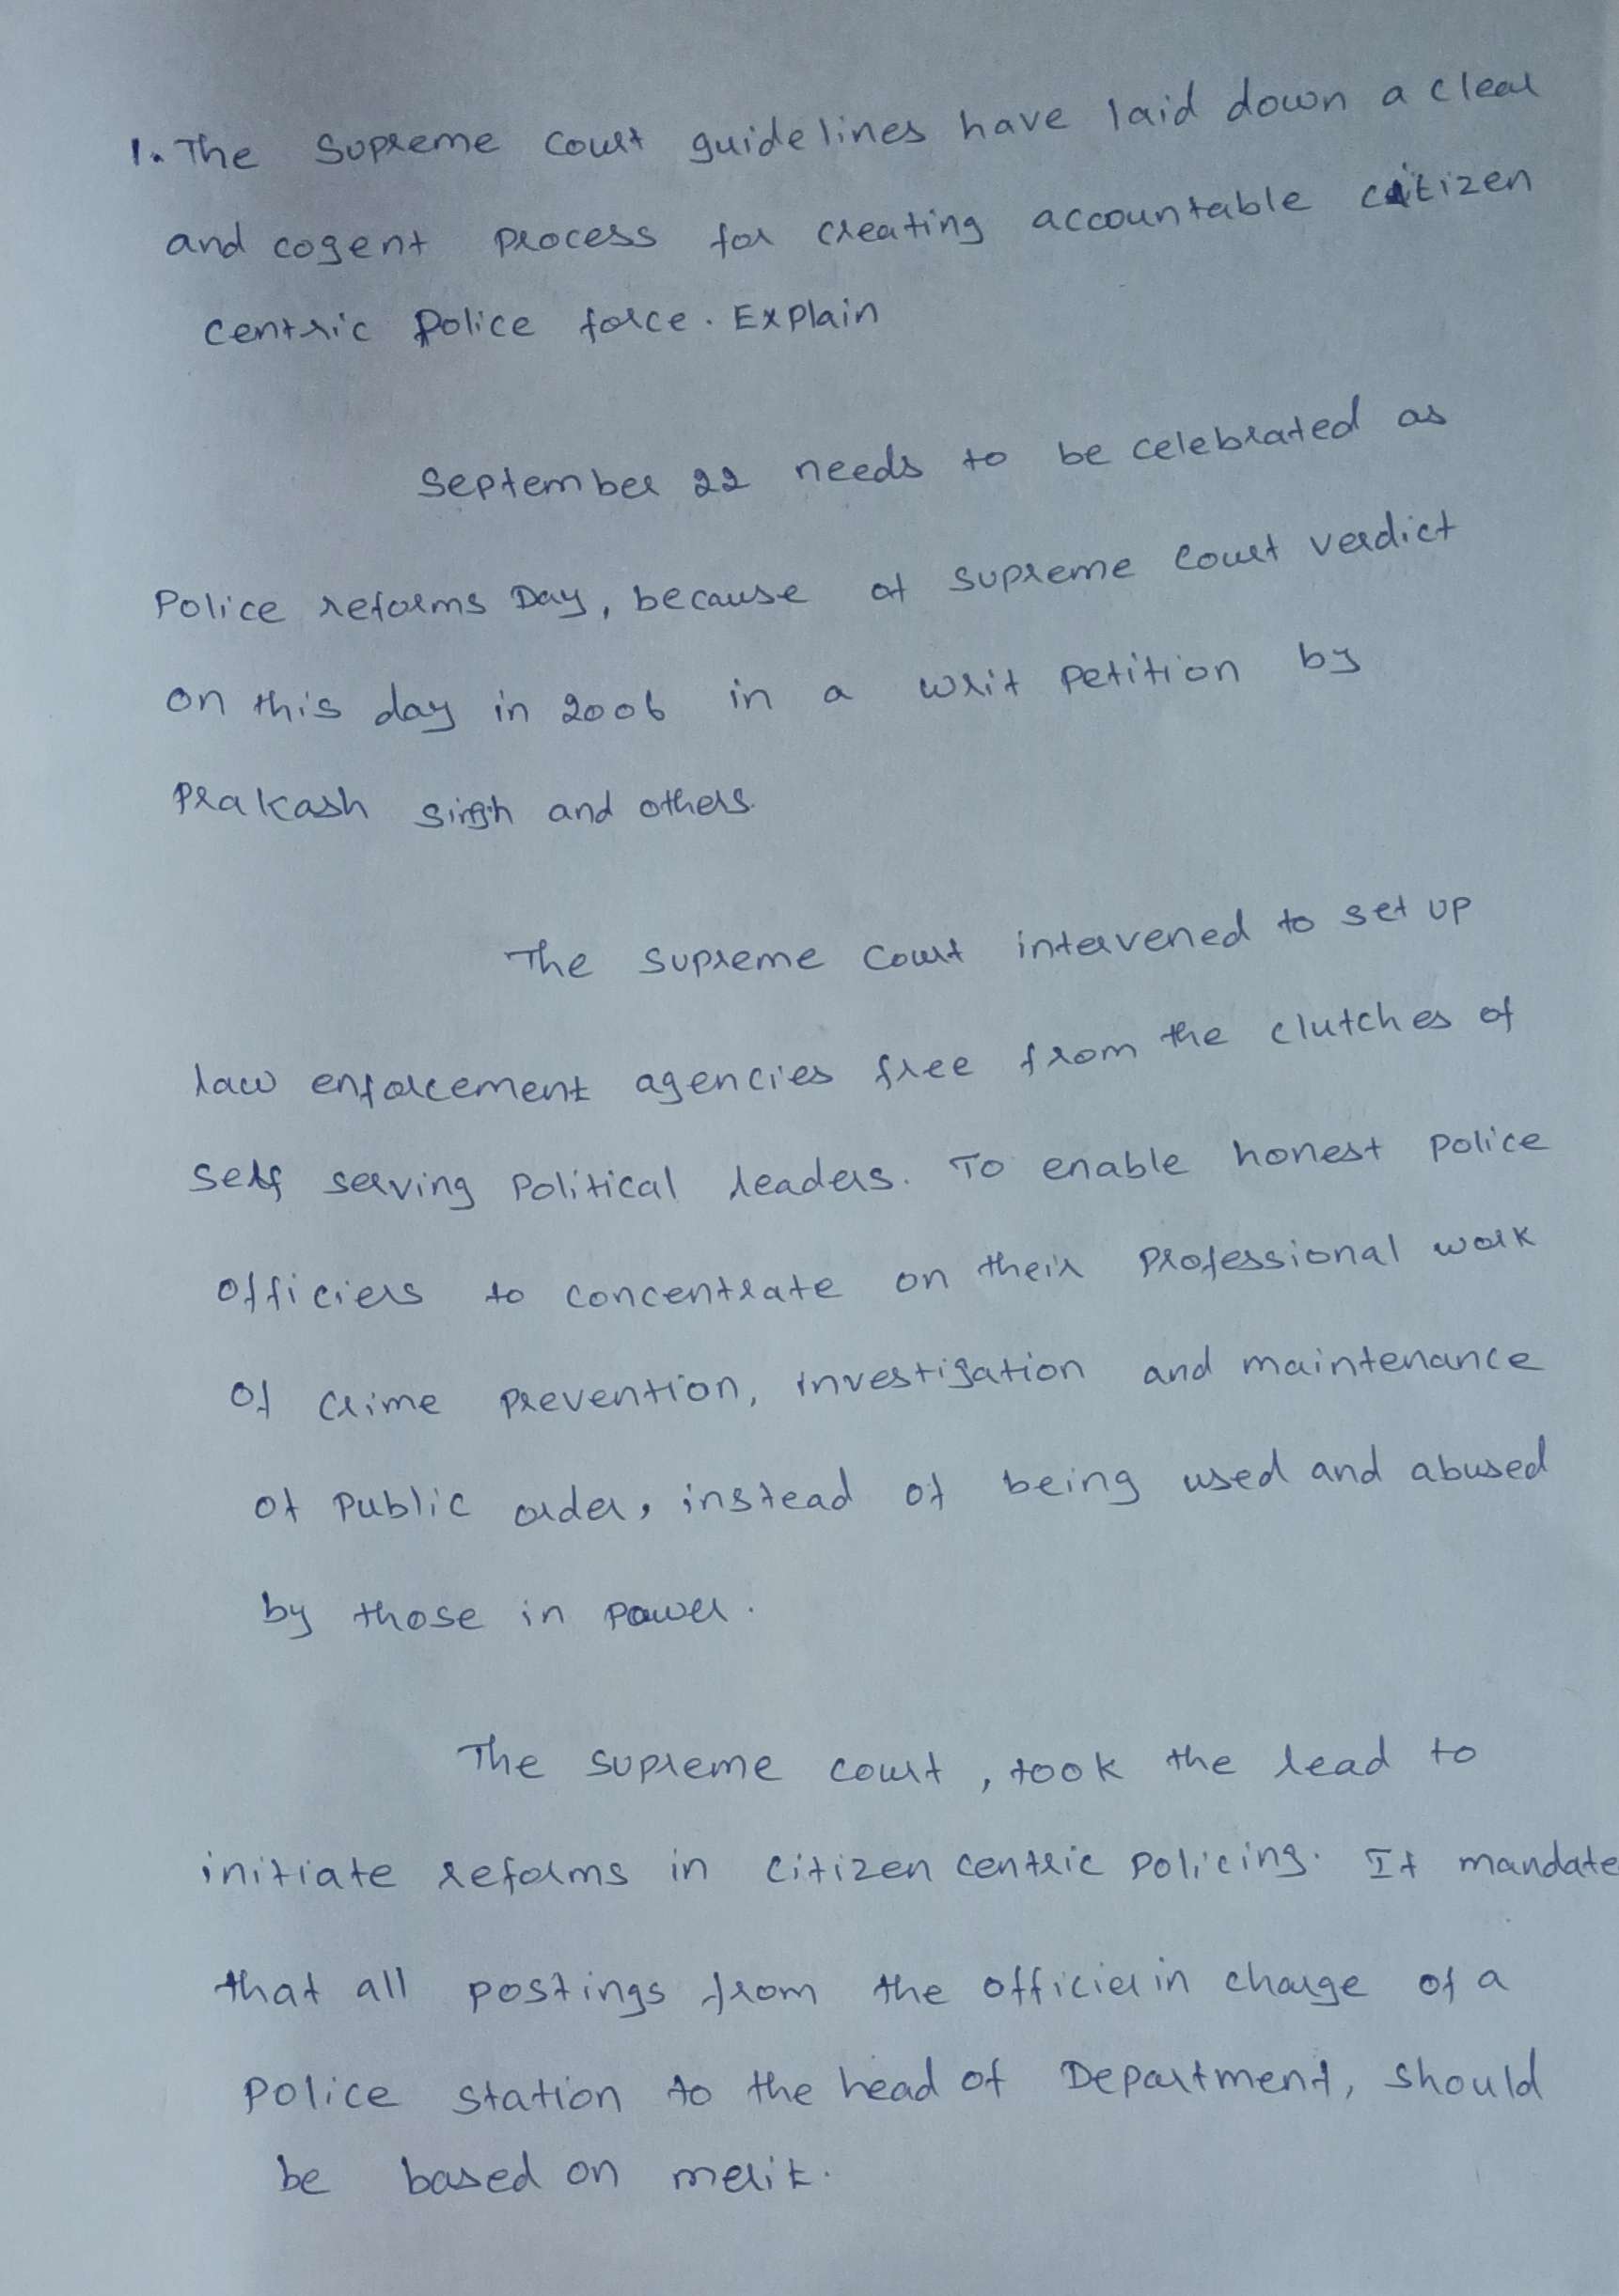 1. The Supreme Court guidelines have laid down a clear
and cogent process for creating accountable citizen
centric police force. Explain
September 22 needs to be celebrated as
Police reforms Day, because of supreme Court verdict
on this day in 2006 in a writ petition by
Prakash Singh and others.
The Supreme Court intervened to set up
law enforcement agencies free from the clutches of
self serving political leaders. To enable honest police
officiers to concentrate on their professional work
of crime prevention, investigation and maintenance
of public order, instead of being used and abused
by those in power.
The supreme court, took the lead to
initiate reforms in citizen centric policing. It mandate
that all postings from the officier in charge of a
police station to the head of Department, should
be based on merit.